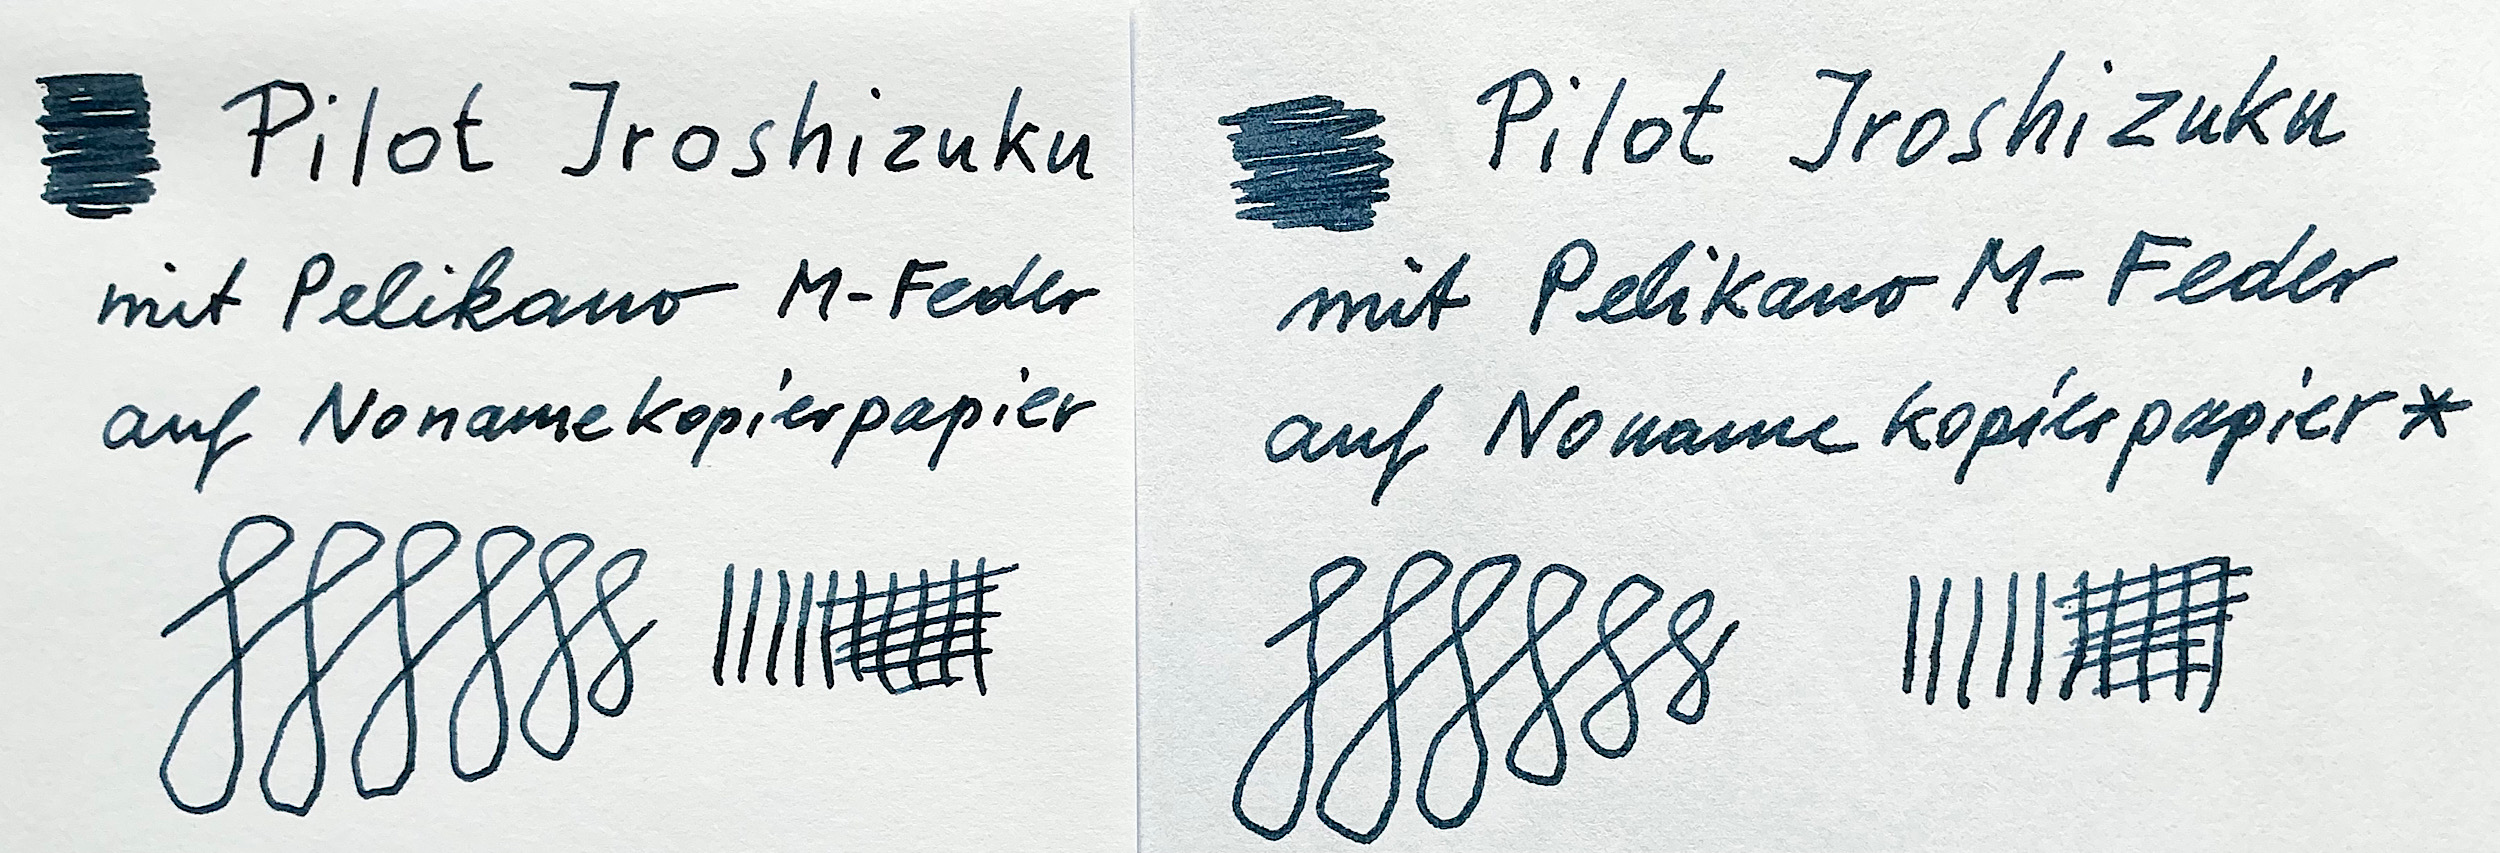 Pilot Iroshizuku
mit Pelikano M-Feder
auf Nonamekopierpapier
Pilot Iroshizuku
mit Pelikano M-Feder
auf Noname kopierpapier *